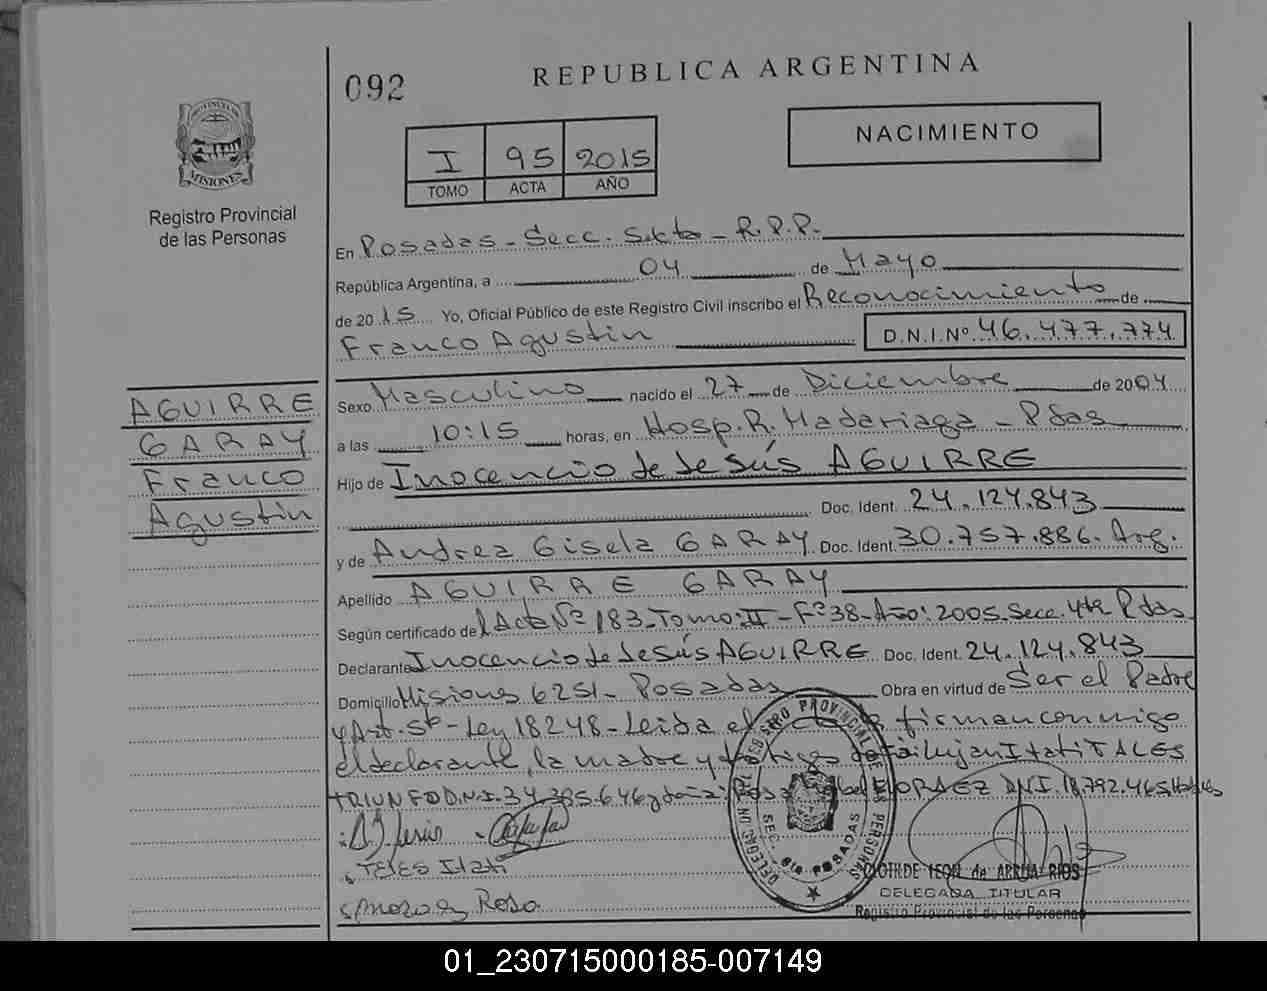 092
REPUBLICA ARGENTINA
NACIMIENTO
I 95 2015
TOMO ACTA AÑO
MISIONES
Registro Provincial
de las Personas
En Posadas - Secc. Sexta - R.P.P.
República Argentina, a 04 de Mayo
de 2015 Yo, Oficial Público de este Registro Civil inscribo el Reconocimiento de
Franco Agustin D.N.I.Nº 46.477.774
Sexo Masculino nacido el 27 de Diciembre de 2004
a las 10:15 horas, en Hosp. R. Madariaga - Pdas
Hijo de Inocencio de Jesús AGUIRRE
Doc. Ident. 24.124.843
y de Andrea Gisela GARAY Doc. Ident. 30.757.886. Arg.
Apellido AGUIRRE GARAY
Según certificado de Acta Nº 183 - Tomo: II - Fº 38 - Año: 2005. Secc. 4ta Pdas
Declarante Inocencio de Jesús AGUIRRE Doc. Ident. 24.124.843
Domicilio Misiones 6251 - Posadas Obra en virtud de Ser el Padre
y Art. 5º - Ley 18248 - Leida el firman conmigo
el declarante, la madre y Itati TALES
TRIUNFO D.N.I. 34.385.646 y doña: Rosa DNI. 18.792.465
AGUIRRE
GARAY
Franco
Agustin
Teles Itati
Rosa
REGISTRO PROVINCIAL DE LAS PERSONAS
SEC. 6ta POSADAS
CLOTILDE LEON de ARRUA RIOS
DELEGADA TITULAR
Registro Provincial de las Personas
01_230715000185-007149